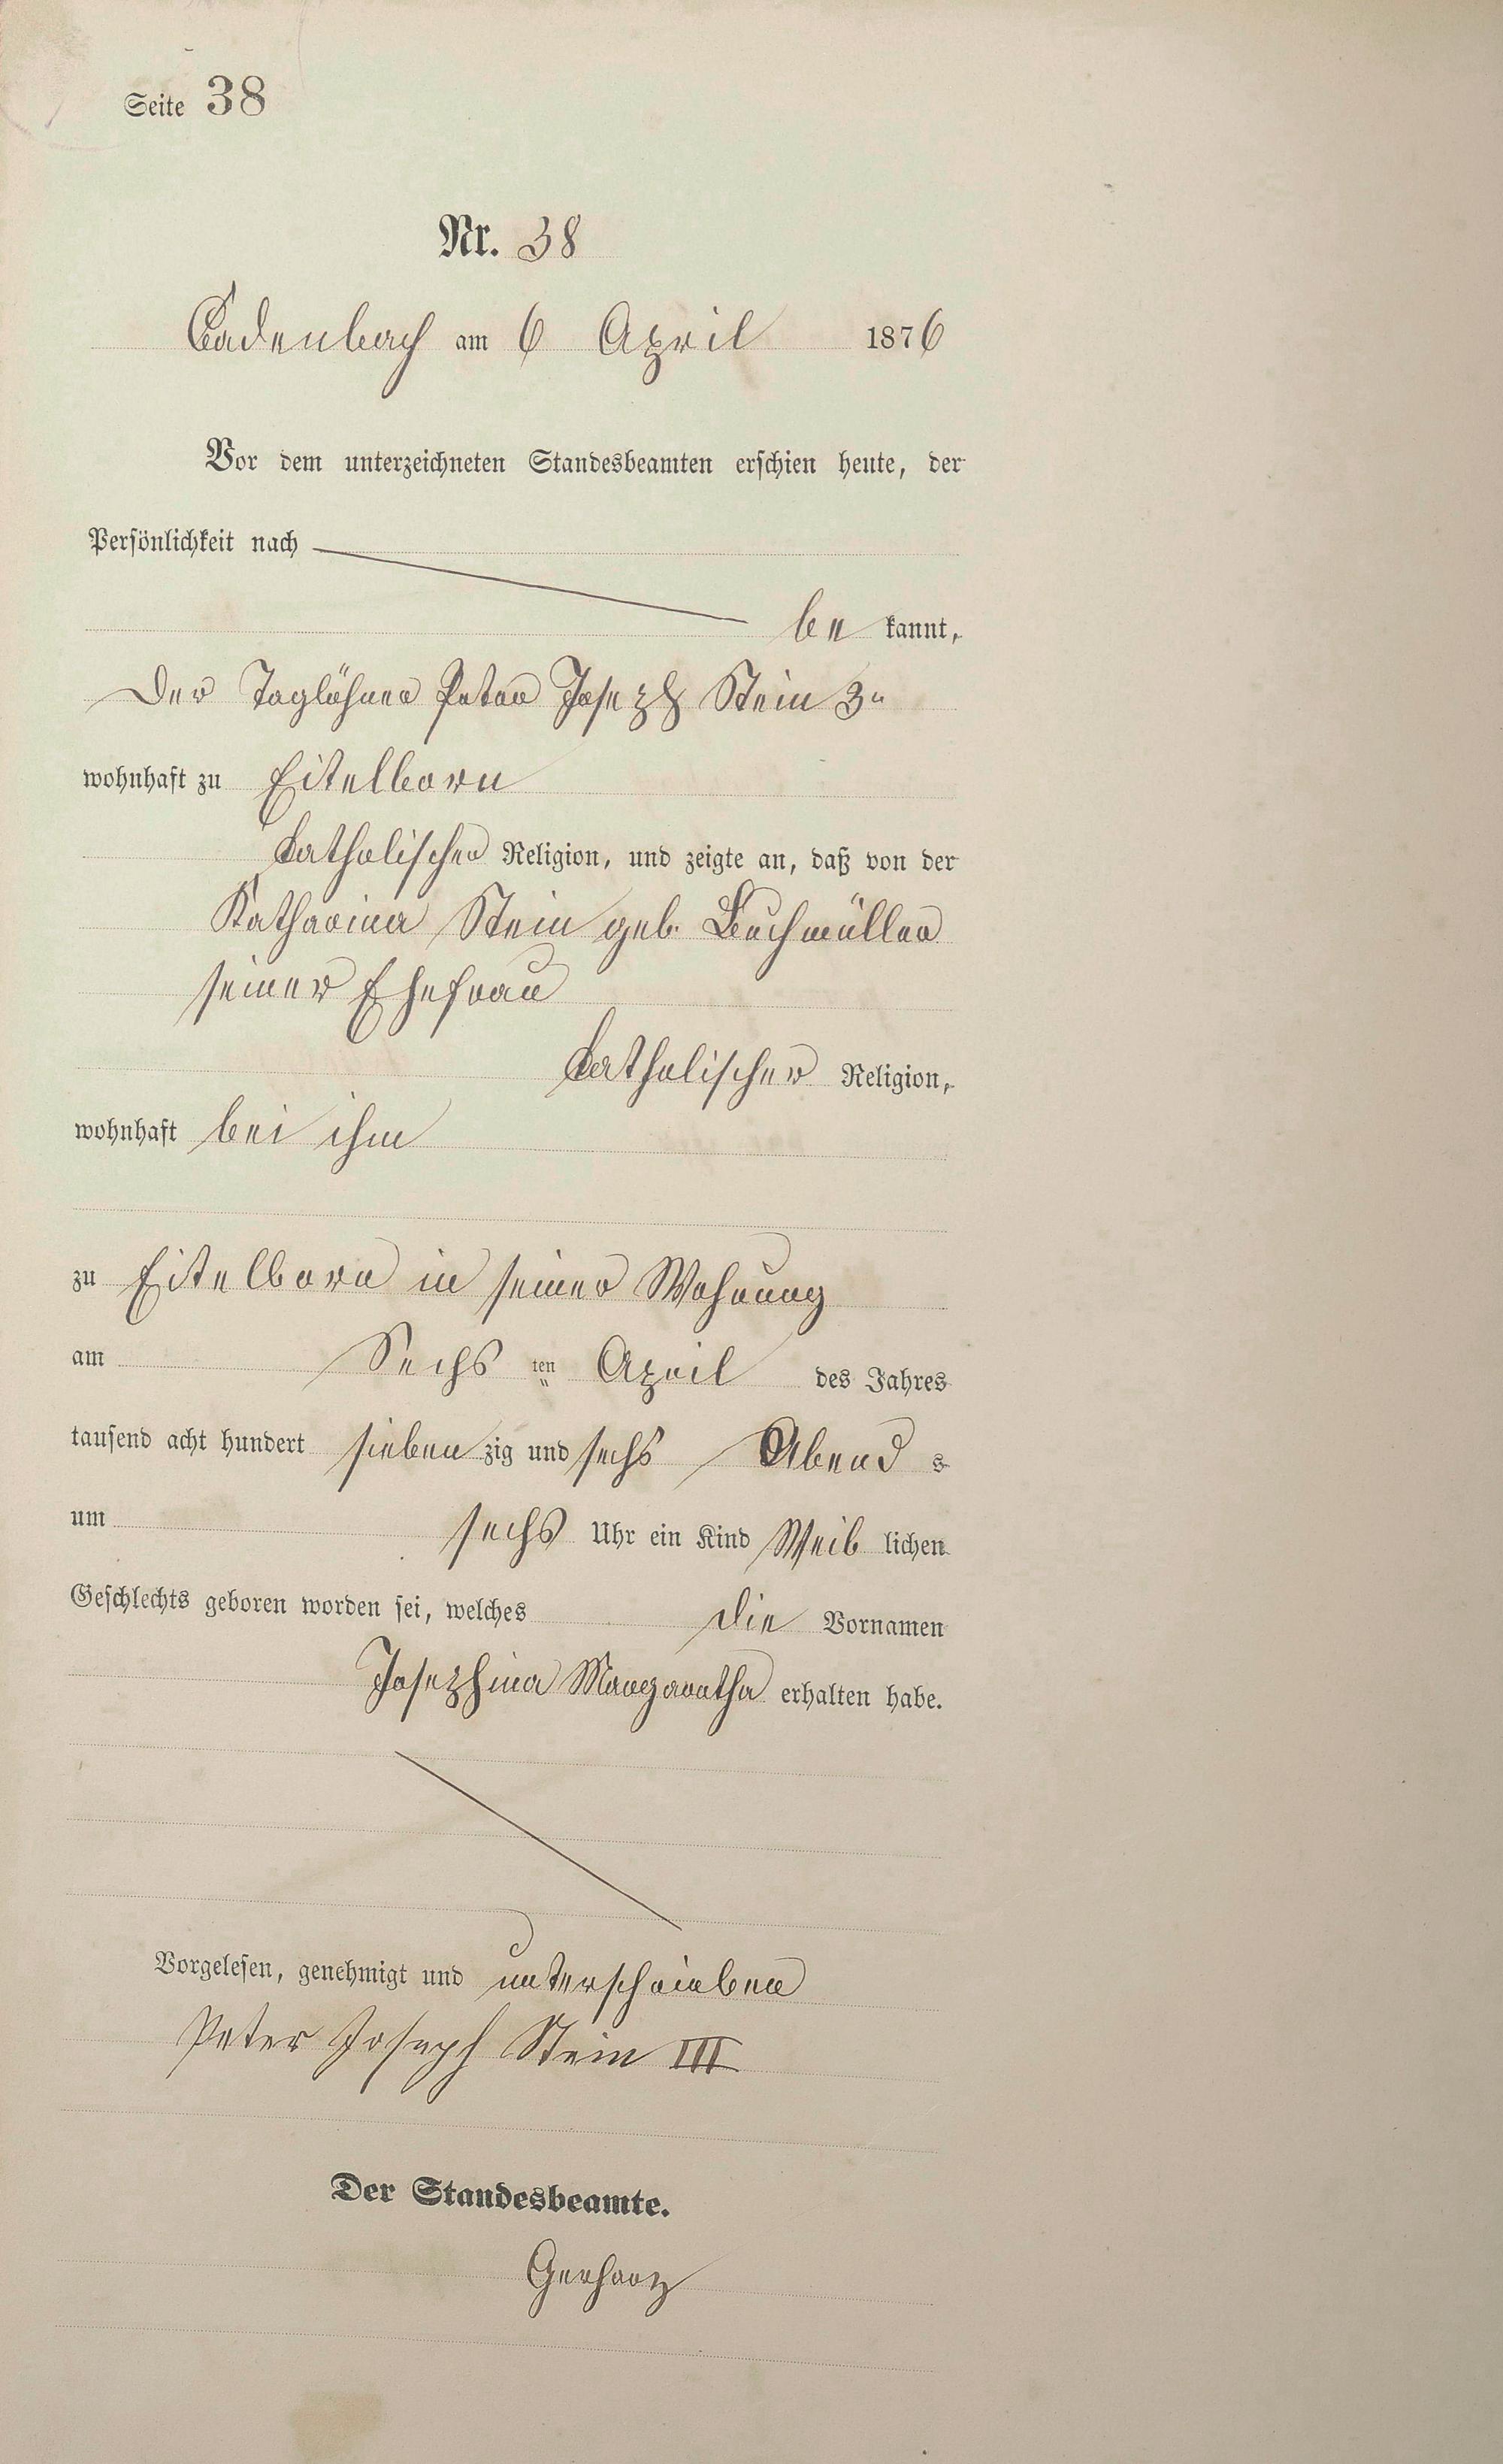 Seite 38
Nr. 38
Cadenbach am 6 April 1876
Vor dem unterzeichneten Standesbeamten erschien heute, der
Persönlichkeit nach
be kannt,
Der Taglöhner Peter Joseph Stein 3r
wohnhaft zu Eitelborn
katholischer Religion, und zeigte an, daß von der
Katharina Stein geb. Buchmüller
seiner Ehefrau
katholischer Religion,
wohnhaft bei ihm
zu Eitelborn in seiner Wohnung
am Sechs ten April des Jahres
tausend acht hundert sieben zig und sechs Abend s
um sechs Uhr ein Kind Weib lichen
Geschlechts geboren worden sei, welches die Vornamen
Josephina Margaretha erhalten habe.
Vorgelesen, genehmigt und unterschrieben
Peter Joseph Stein III
Der Standesbeamte.
Gerharz